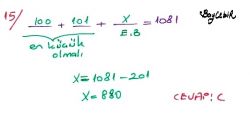 15/ 100 + 101 + X = 1081
E.B
en küçük
olmalı
X = 1081 - 201
X = 880
CEVAP: C